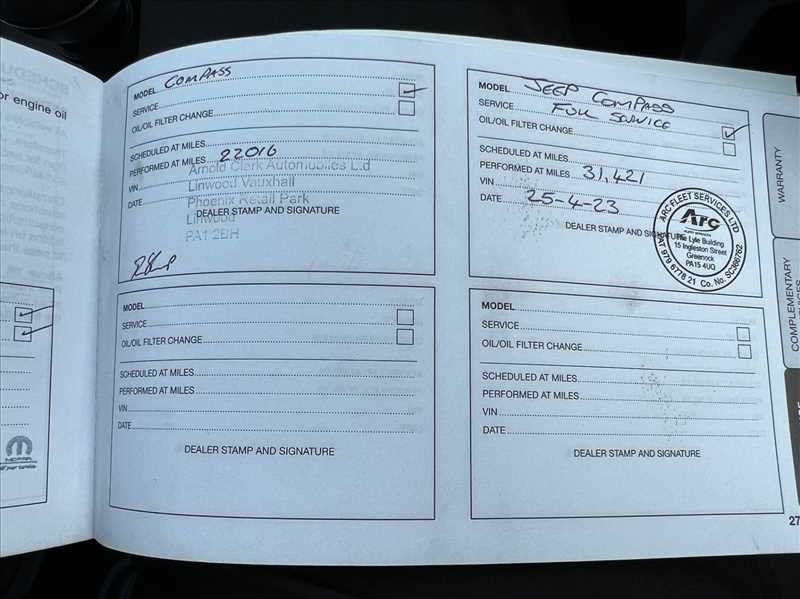 or engine oil
MOPAR
MODEL COMPASS
SERVICE
OIL/OIL FILTER CHANGE
SCHEDULED AT MILES
PERFORMED AT MILES 22016
VIN
DATE
DEALER STAMP AND SIGNATURE
Arnold Clark Automobiles Ltd
Linwood Vauxhall
Phoenix Retail Park
Linwood
PA1 2BH
MODEL JEEP COMPASS
SERVICE FULL SERVICE
OIL/OIL FILTER CHANGE
SCHEDULED AT MILES
PERFORMED AT MILES 31,421
VIN
DATE 25-4-23
DEALER STAMP AND SIGNATURE
ARC FLEET SERVICES LTD
Arc
FLEET SERVICES
The Lyle Building
15 Ingleston Street
Greenock
PA15 4UQ
VAT 979 6778 21 Co. No. SC366762
MODEL
SERVICE
OIL/OIL FILTER CHANGE
SCHEDULED AT MILES
PERFORMED AT MILES
VIN
DATE
DEALER STAMP AND SIGNATURE
MODEL
SERVICE
OIL/OIL FILTER CHANGE
SCHEDULED AT MILES
PERFORMED AT MILES
VIN
DATE
DEALER STAMP AND SIGNATURE
WARRANTY
COMPLEMENTARY
27